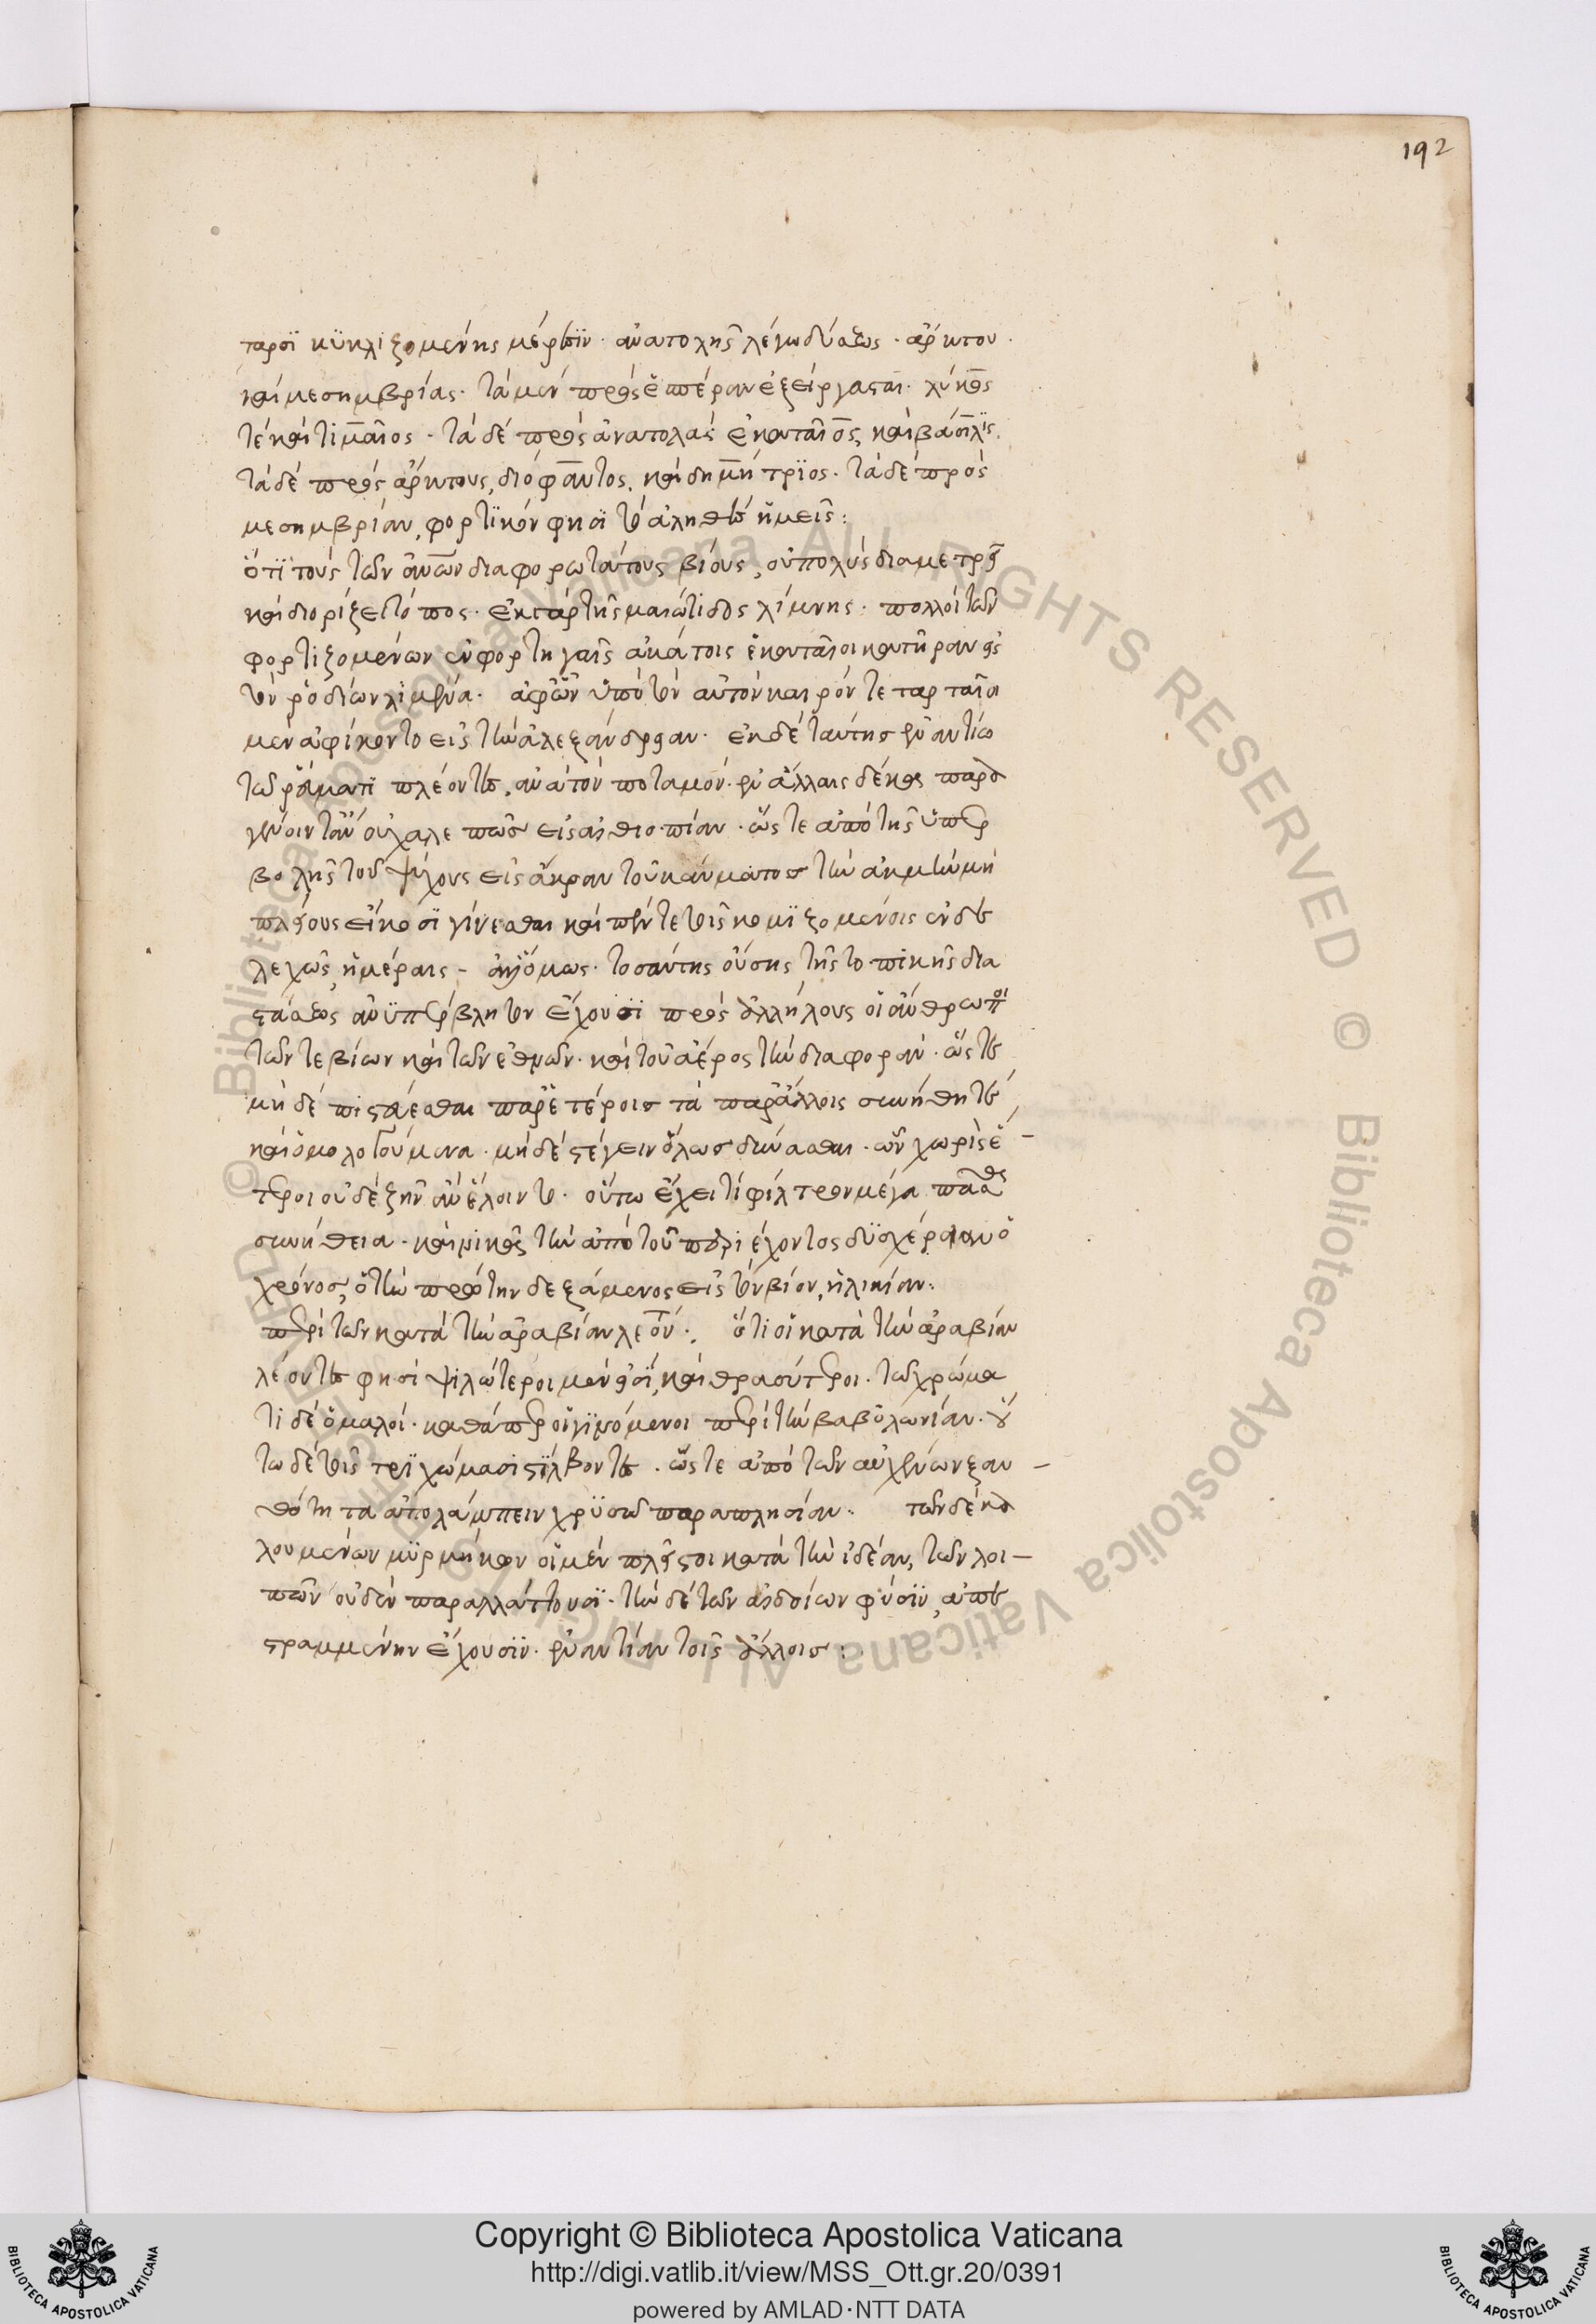 192
ταρσι κυκλιζομένης μέρεσιν· ἀνατολῆς λέγω δύσεως· ἄρκτου·
καὶ μεσημβρίας· τὰ μὲν πρὸς ἑσπέραν ἐξείργασται· λύκος
τὲ καὶ τίμαιος· τὰ δὲ πρὸς ἀνατολὰς ἑκαταῖος, καὶ βασιλις.
τὰ δὲ πρὸς ἄρκτους, διόφαντος, καὶ δημήτριος· τὰ δὲ πρὸς
μεσημβρίαν, φορτικόν φησι τὸ ἀληθὲς ἡμεῖς:
ὅτι τοὺς τῶν ἀνων διαφορωτάτους βίους, οὐ πολὺς διαμετρεῖ
καὶ διορίζει τόπος· ἐκ γὰρ τῆς μαιώτιδος λίμνης· πολλοὶ τῶν
φορτιζομένων ἐν φορτηγαῖς ἀκάτοις ἑκαταῖοι κατῆραν εἰς
τὸν ῥοδίων λιμένα· ἀφ' ὧν ὑπὸ τὸν αὐτὸν καιρὸν τεταρταῖοι
μὲν ἀφίκοντο εἰς τὴν ἀλεξάνδρειαν· ἐκ δὲ ταύτης ἐναντίω
τῶ ῥεύματι πλέοντες, ἀνὰ τὸν ποταμόν· ἐν ἄλλαις δέκα παρα
γένοιντ' ἂν οὐ χαλεπῶς εἰς αἰθιοπίαν· ὥστε ἀπὸ τῆς ὑπερ
βολῆς τοῦ ψύχους εἰς ἄκραν τοῦ καύματος τὴν ἀκμὴν μὴ
πλείους εἴκοσι γίνεσθαι καὶ πέντε τοῖς κομιζομένοις ἐνδε
λεχῶς, ἡμέραις - ἀλλ' ὅμως· τοσαύτης οὔσης τῆς τοπικῆς δια
στάσεως ἀνυπέρβλητον ἔχουσι πρὸς ἀλλήλους οἱ ἄνθρωποι
τῶν τε βίων καὶ τῶν ἐθνῶν· καὶ τοῦ ἀέρος τὴν διαφοράν· ὥστε
μὴ δὲ πιστεύεσθαι παρ' ἑτέροις τὰ παρ' ἄλλοις συνήθη τε
καὶ ὁμολογούμενα· μὴ δὲ στέγειν ὅλως δύνασθαι· ὧν χωρὶς ἕ -
τεροι οὐδὲ ζῆν ἂν ἕλοιντο· οὕτω ἔχει τί φίλτρον μέγα πᾶσα
συνήθεια· καὶ νικᾶ τὴν ἀπὸ τοῦ περιέχοντος δυσχέρειαν ὁ
χρόνος, ὁ τὴν πρώτην δεξάμενος εἰς τὸν βίον, ἡλικίαν:
περὶ τῶν κατὰ τὴν ἀραβίαν λεόντ: ὅτι οἱ κατὰ τὴν ἀραβίαν
λέοντες φησὶ ψιλώτεροι μὲν εἰσι, καὶ θρασύτεροι· τῶ χρώμα
τι δὲ ὁμαλοί· καθάπερ οἱ γινόμενοι περὶ τὴν βαβυλωνίαν· οὕ
τω δὲ τοῖς τριχώμασι στίλβοντες· ὥστε ἀπὸ τῶν αὐχένων ξαν -
θότητα ἀπολάμπειν χρυσῶ παραπλησίαν: τῶν δὲ κα
λουμένων μυρμήκων οἱ μὲν πλεῖστοι κατὰ τὴν ἰδέαν, τῶν λοι -
πῶν οὐδὲν παραλλάττουσι· τὴν δὲ τῶν αἰδοίων φύσιν, ἀπε
στραμμένην ἔχουσιν· ἐναντίαν τοῖς ἄλλοις:
Copyright © Biblioteca Apostolica Vaticana
http://digi.vatlib.it/view/MSS_Ott.gr.20/0391
powered by AMLAD·NTT DATA